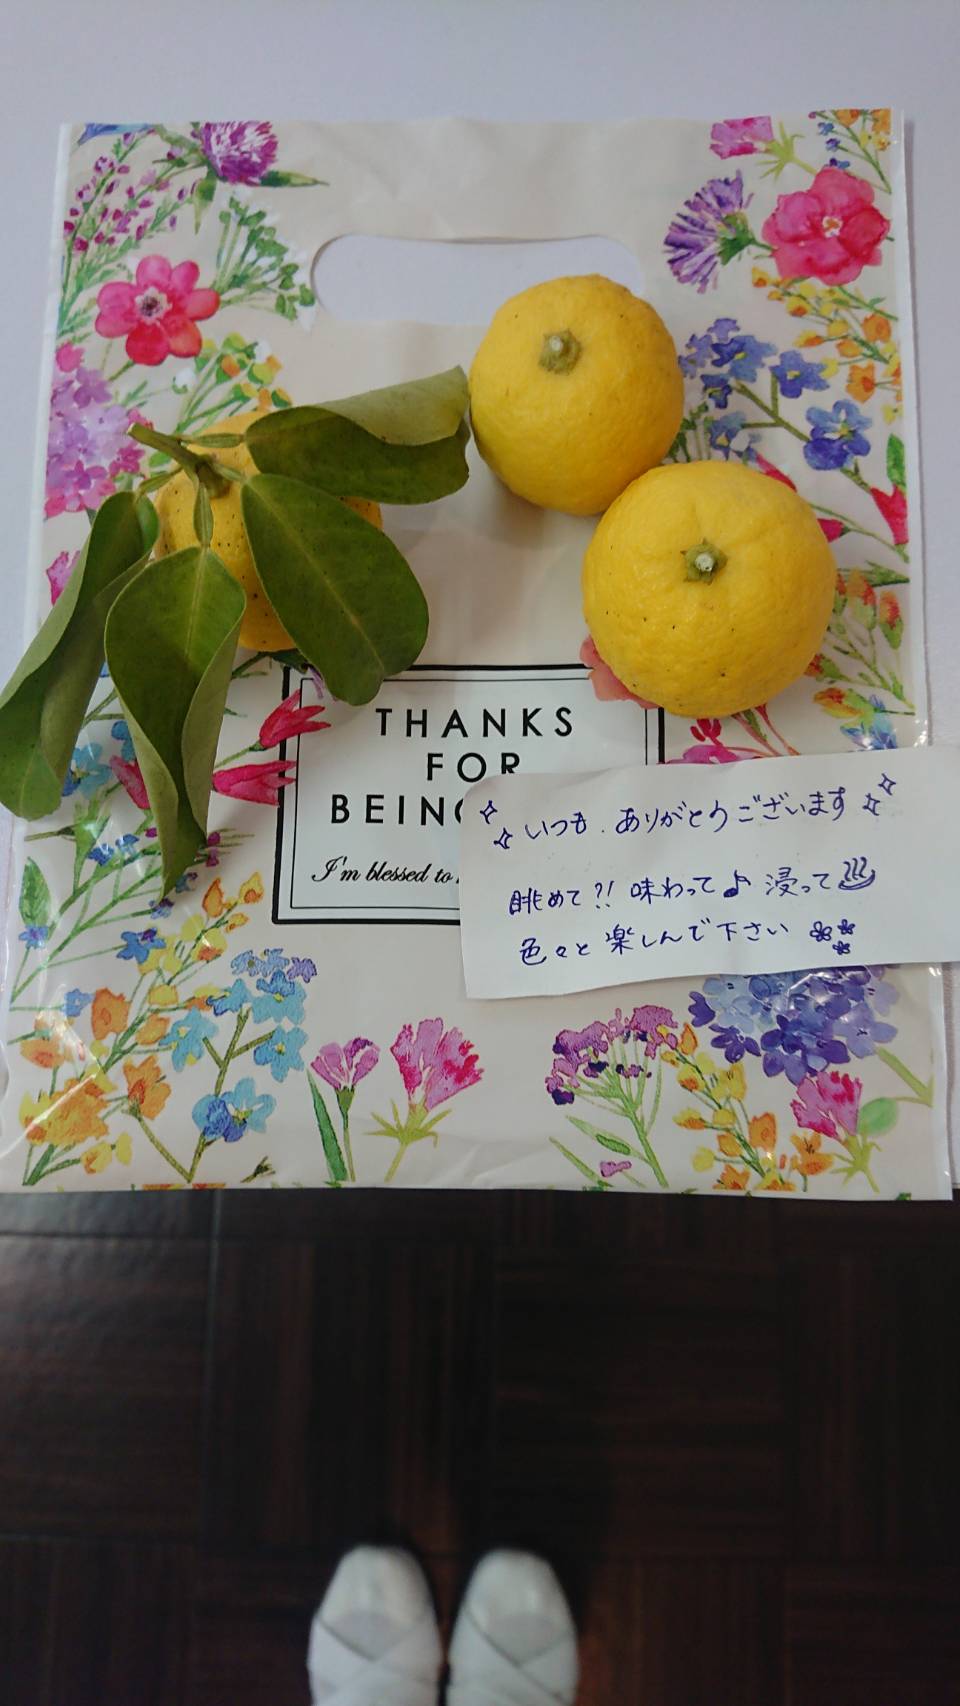 THANKS
FOR
BEING
I'm blessed to
いつも．ありがとうございます
眺めて?! 味わって♪ 浸って♨
色々と楽しんで下さい